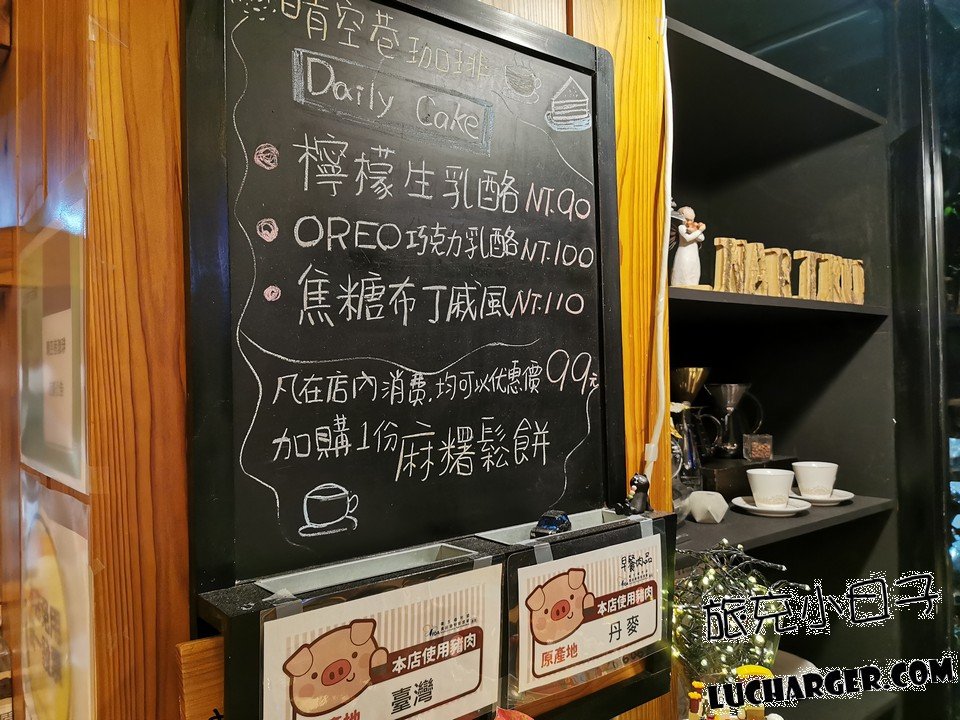 晴空巷珈琲
Daily Cake
檸檬生乳酪 NT.90
OREO巧克力乳酪 NT.100
焦糖布丁戚風 NT.110
凡在店內消費,均可以優惠價99元
加購1份麻糬鬆餅
本店使用豬肉
原產地
臺灣
早餐肉品
本店使用豬肉
原產地
丹麥
旅充小日子
LUCHARGER.COM